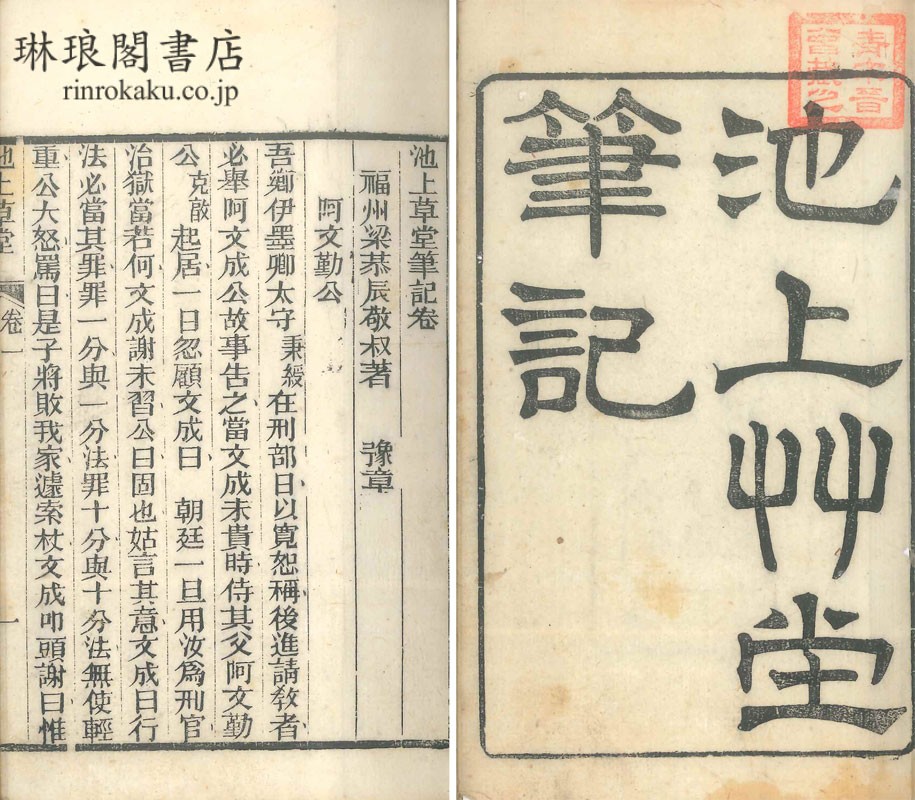 琳琅閣書店
rinrokaku.co.jp
池上艸堂
筆記
池上草堂筆記卷
福州梁恭辰敬叔著　豫章
阿文勤公
吾鄉伊墨卿太守秉綬在刑部日以寬恕稱後進請敎者
必舉阿文成公故事吿之當文成未貴時侍其父阿文勤
公克敵起居一日忽顧文成曰　朝廷一旦用汝爲刑官
治獄當若何文成謝未習公曰固也姑言其意文成曰行
法必當其罪罪一分與一分法罪十分與十分法無使輕
重公大怒罵曰是子將敗我家遽索杖文成叩頭謝曰惟
池上草堂　卷一　一